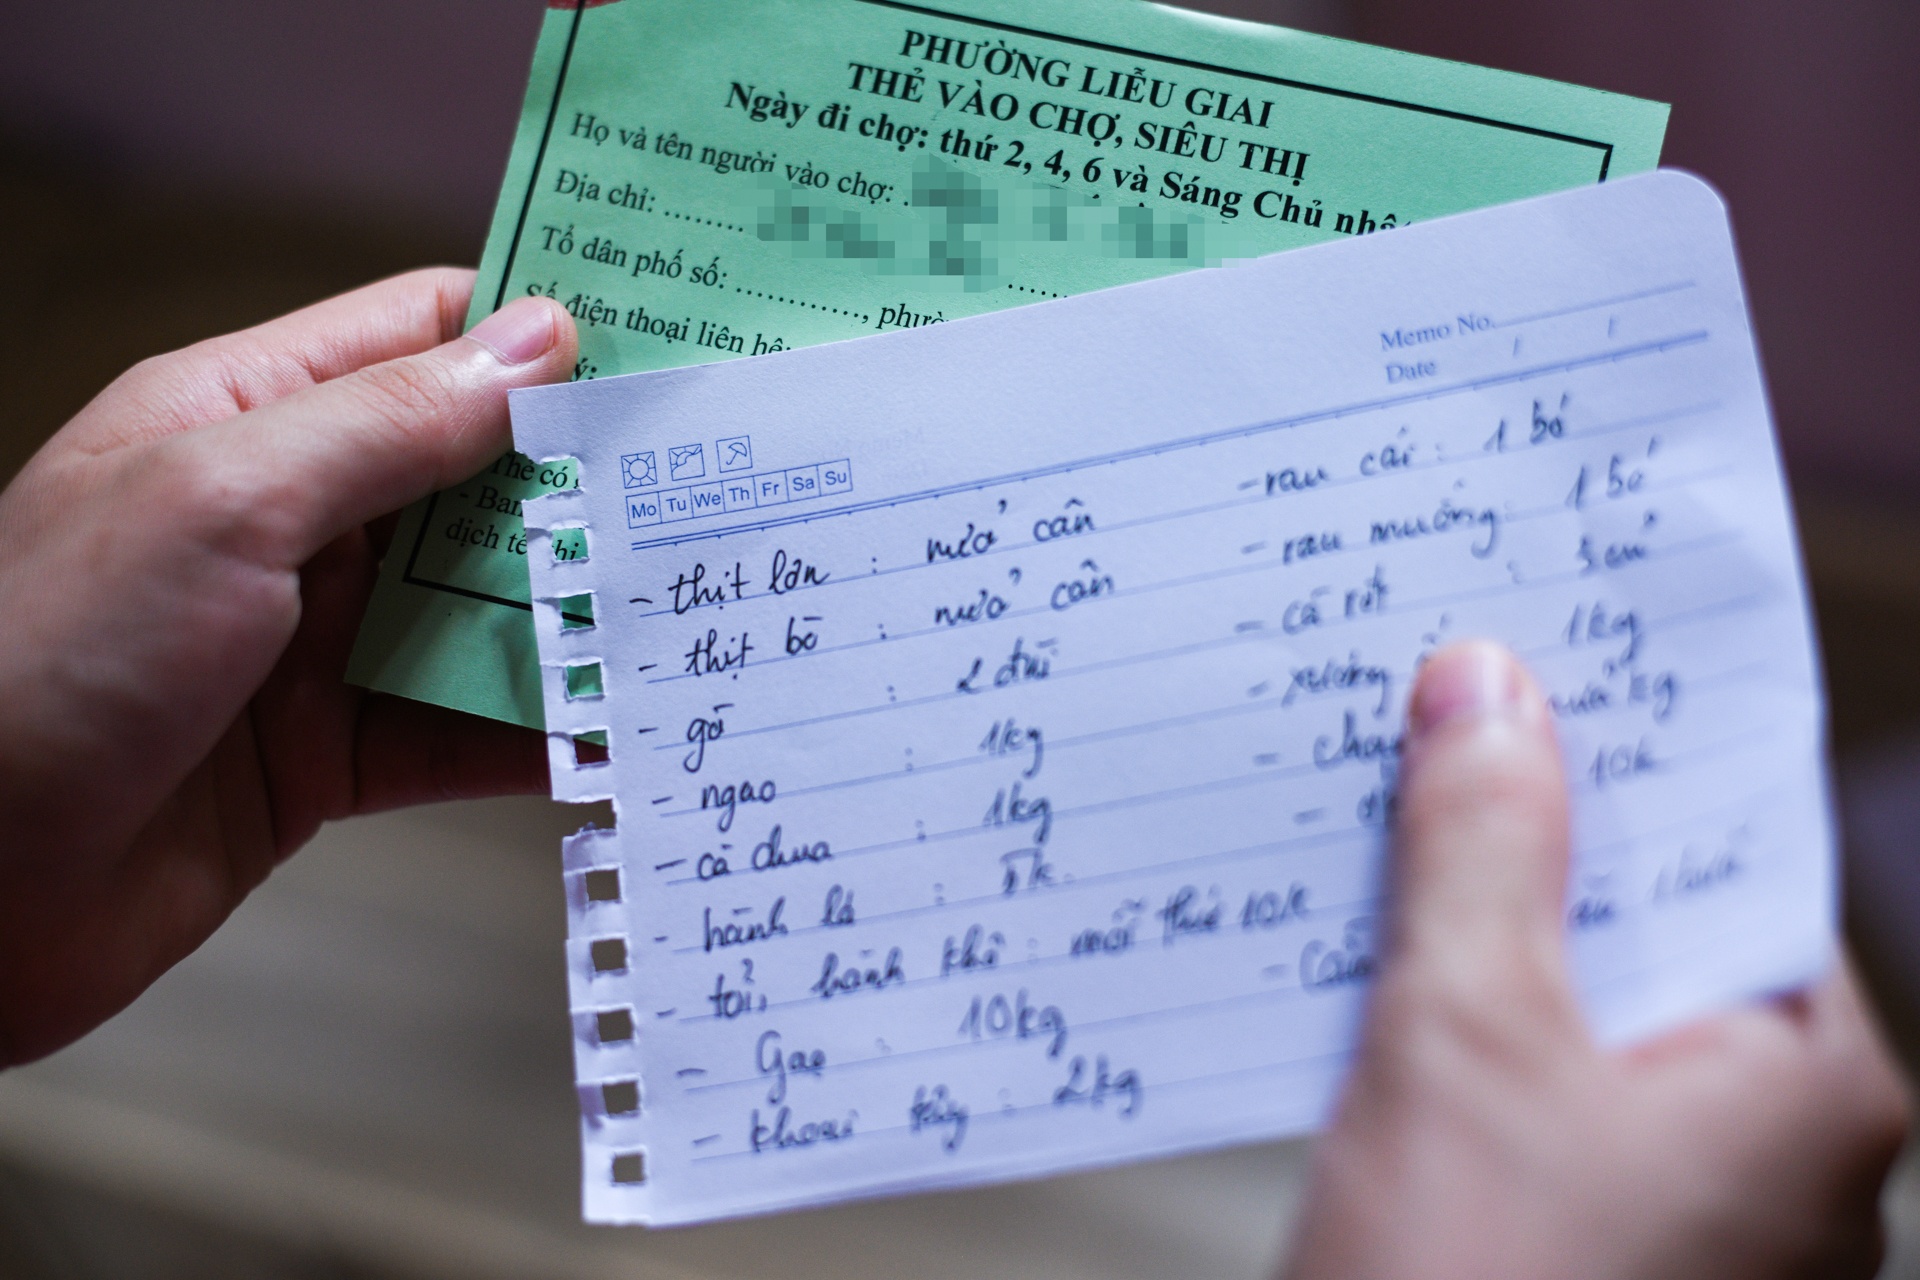 PHƯỜNG LIỄU GIAI
THẺ VÀO CHỢ, SIÊU THỊ
Ngày đi chợ: thứ 2, 4, 6 và Sáng Chủ
Họ và tên người vào chợ:
Địa chỉ:
Tổ dân phố số: ............,
Số điện thoại liên hệ:
Thẻ có
- Ban
dịch tễ
Memo No.
Date / /
Mo Tu We Th Fr Sa Su
- thịt lợn : nửa cân
- thịt bò : nửa cân
- gà : 2 đùi
- ngao : 1kg
- cà chua : 1kg
- hành lá : 5k.
- tỏi, hành khô : mỗi thứ 10k
- Gạo : 10kg
- khoai tây : 2kg
- rau cải : 1 bó
- rau muống : 1 bó
- cà rốt : 3 củ
- xương 1kg
- nửa kg
- 10k
-